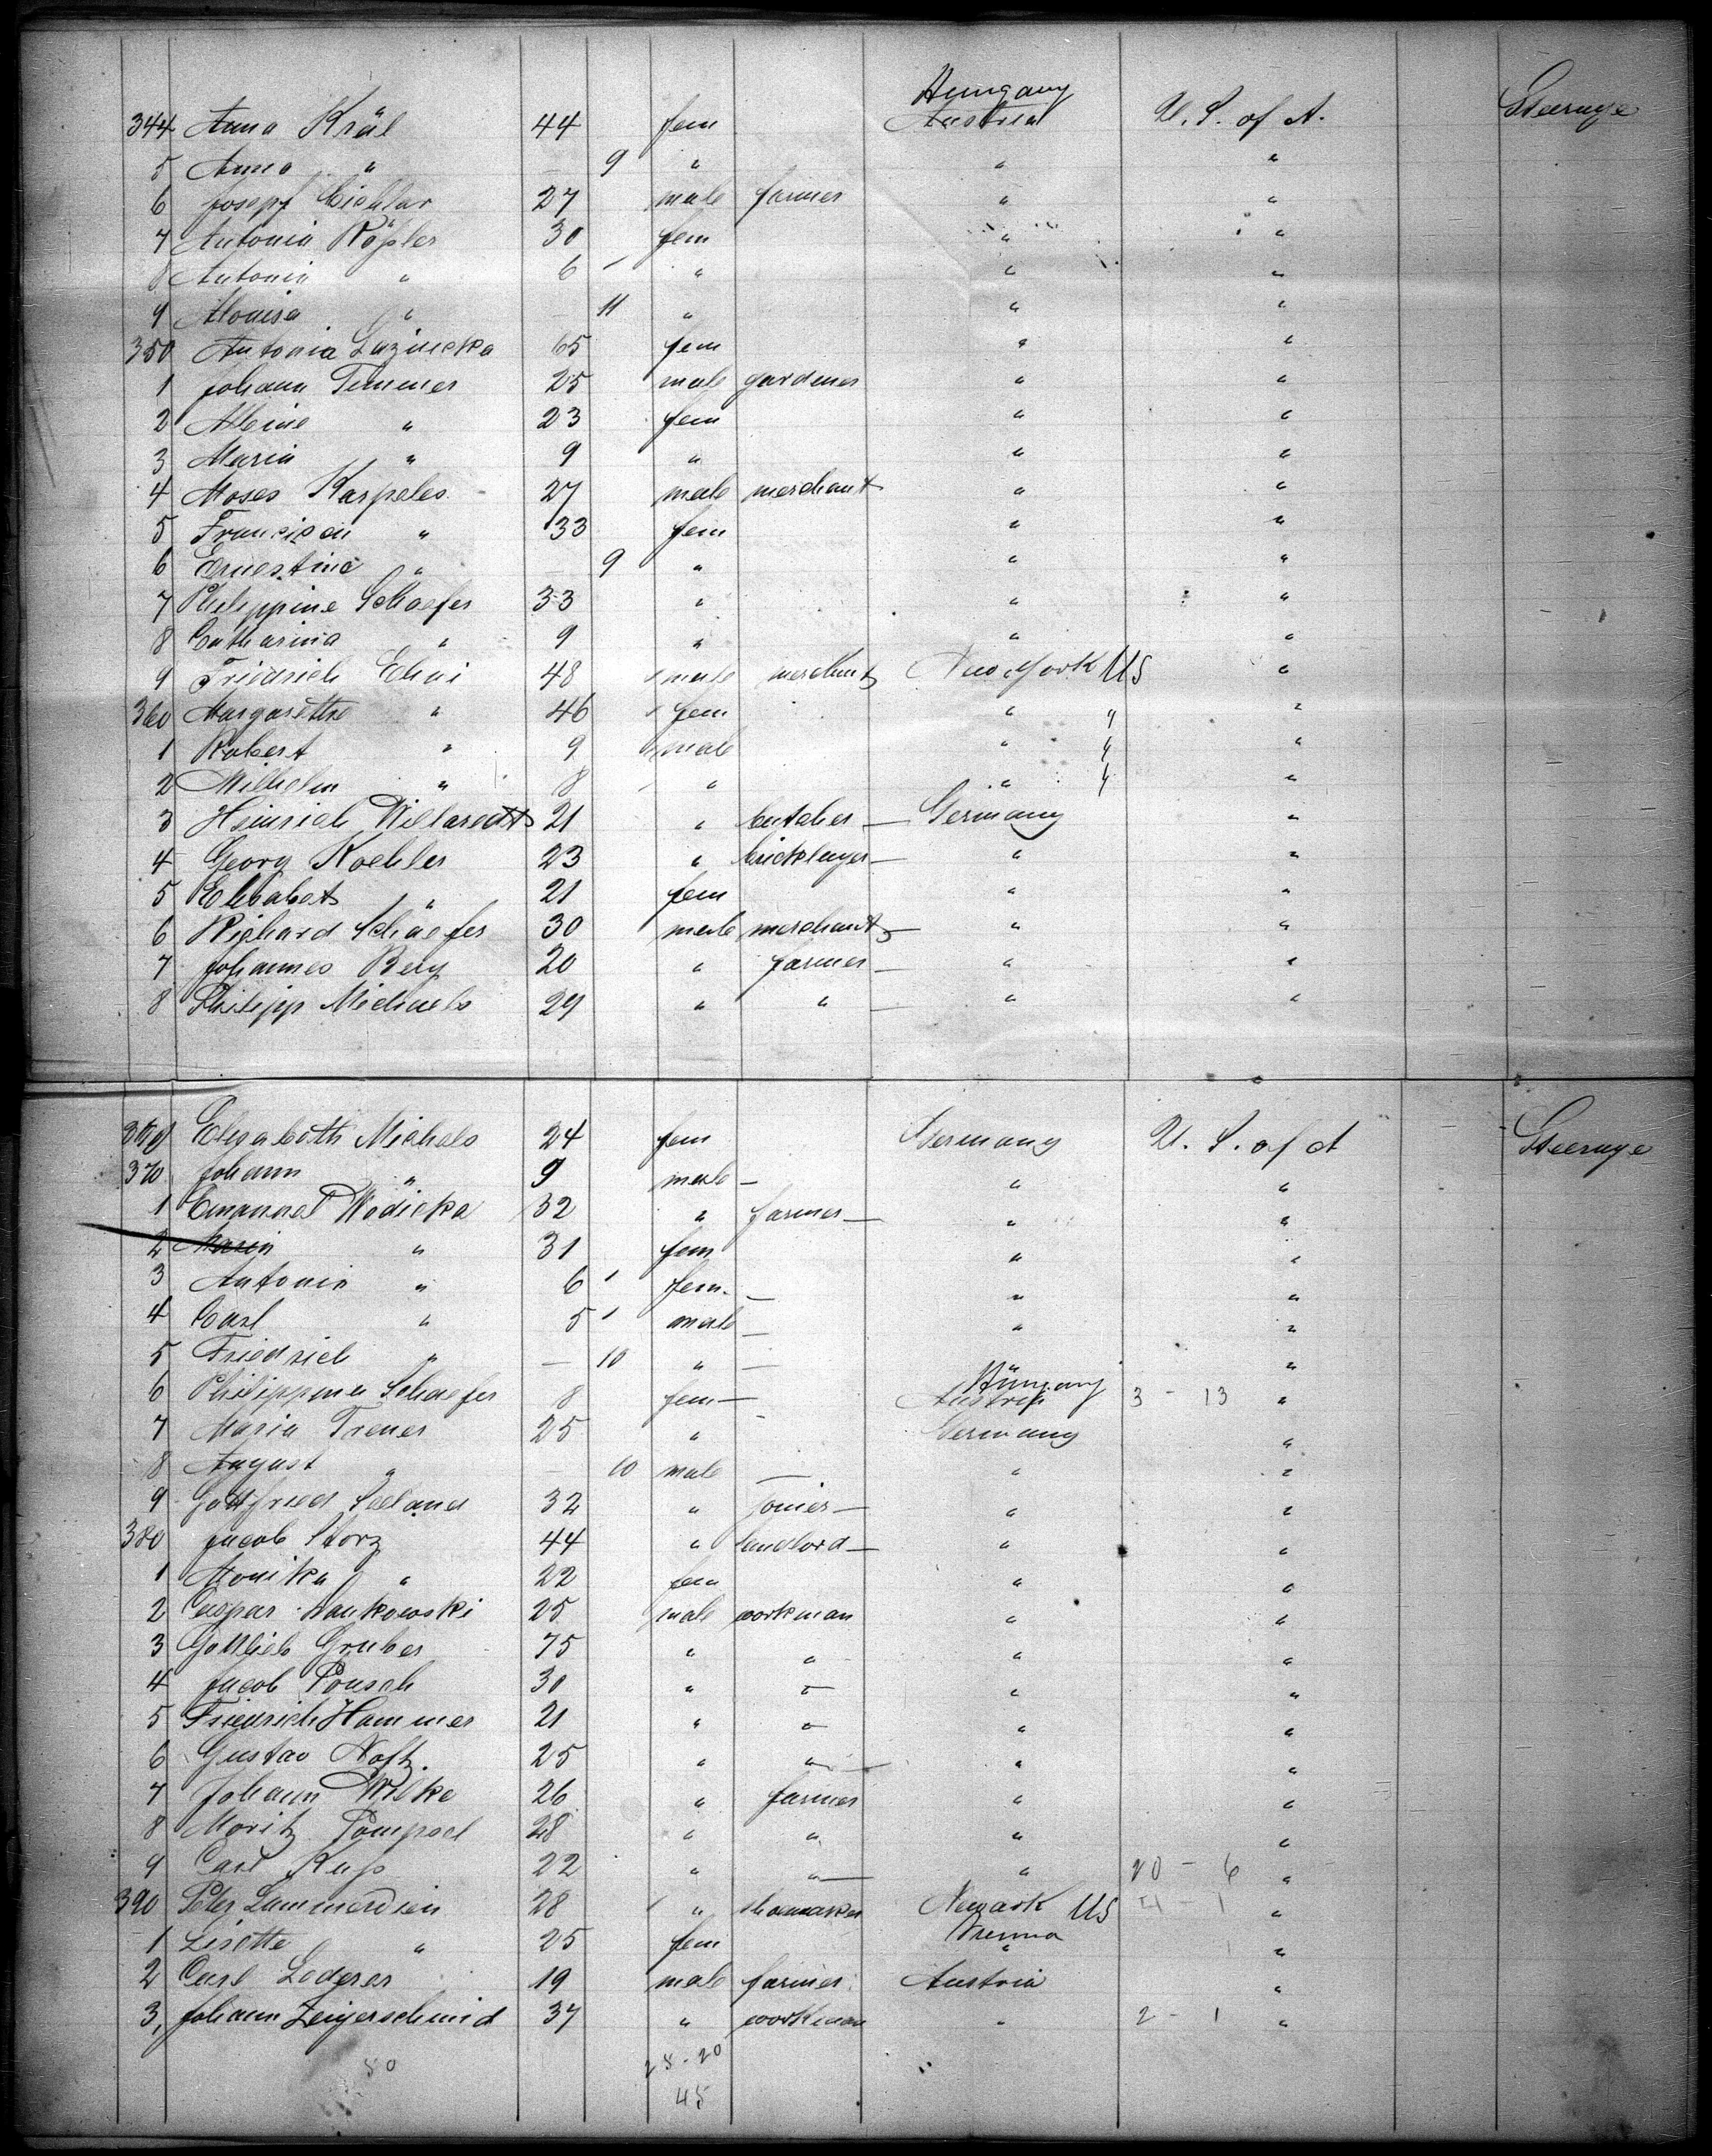 Hungary
344 Anna Král 44 fem Austria U. S. of A. Steerage
5 Anna " 9 " " "
6 Josepf Cichlar 27 male farmer " "
7 Antonia Rößler 30 fem " "
8 Antonia " 6 " " "
9 Alouisa " 11 " " "
350 Antonia 65 fem " "
1 Johann Timmer 25 male gardener " "
2 Albine " 23 fem " "
3 Maria " 9 " " "
4 Moses Karpeles 27 male merchant " "
5 " 33 fem " "
6 Ernestine " 9 " " "
7 Philippine Schaefer 33 " " "
8 Catharina " 9 " " "
9 Friedrich 48 male merchant New York US "
360 Margarethe " 46 fem " " "
1 Robert " 9 male " " "
2 Wilhelm " 8 " " " "
3 Heinrich 21 " butcher — Germany "
4 Georg Koehler 23 " bricklayer — " "
5 Elisabet " 21 fem " "
6 Richard Schaefer 30 male merchant — " "
7 Johannes Berg 20 " farmer — " "
8 Philipp Michaels 29 " " — " "
369 Elisabeth Michels 24 fem Germany U. S. of A Steerage
370 Johann " 9 male — " "
1 Emanuel Wodicka 32 " farmer — " "
2 Maria " 31 fem " "
3 Antonia " 6 fem. — " "
4 Carl " 5 male — " "
5 Friedrich " — 10 " — " "
Hungary
6 Philippina Schaefer 8 fem — Austria 3 - 13 "
7 Maria Trener 25 " - Germany "
8 August " — 10 male — " "
9 Gottfried Seeland 32 " joiner — " "
380 Jacob Storz 44 " landlord — " "
1 Monika " 22 fem " "
2 Caspar 25 male workman " "
3 Gottlieb Gruber 75 " " " "
4 Jacob 30 " " " "
5 Friedrich Hammer 21 " " " "
6 Gustav 25 " " — " "
7 Johann Wilke 26 " farmer " "
8 Moritz 28 " " " "
9 Carl Kuß 22 " " — " 20 - 6 "
390 Peter 28 " shoemaker Newark US 4 - 1 "
1 Lisette " 25 fem " 1 "
2 Carl Lederer 19 male farmer Austria "
3, Johann 37 " workman " 2 - 1 "
50 25-20
45